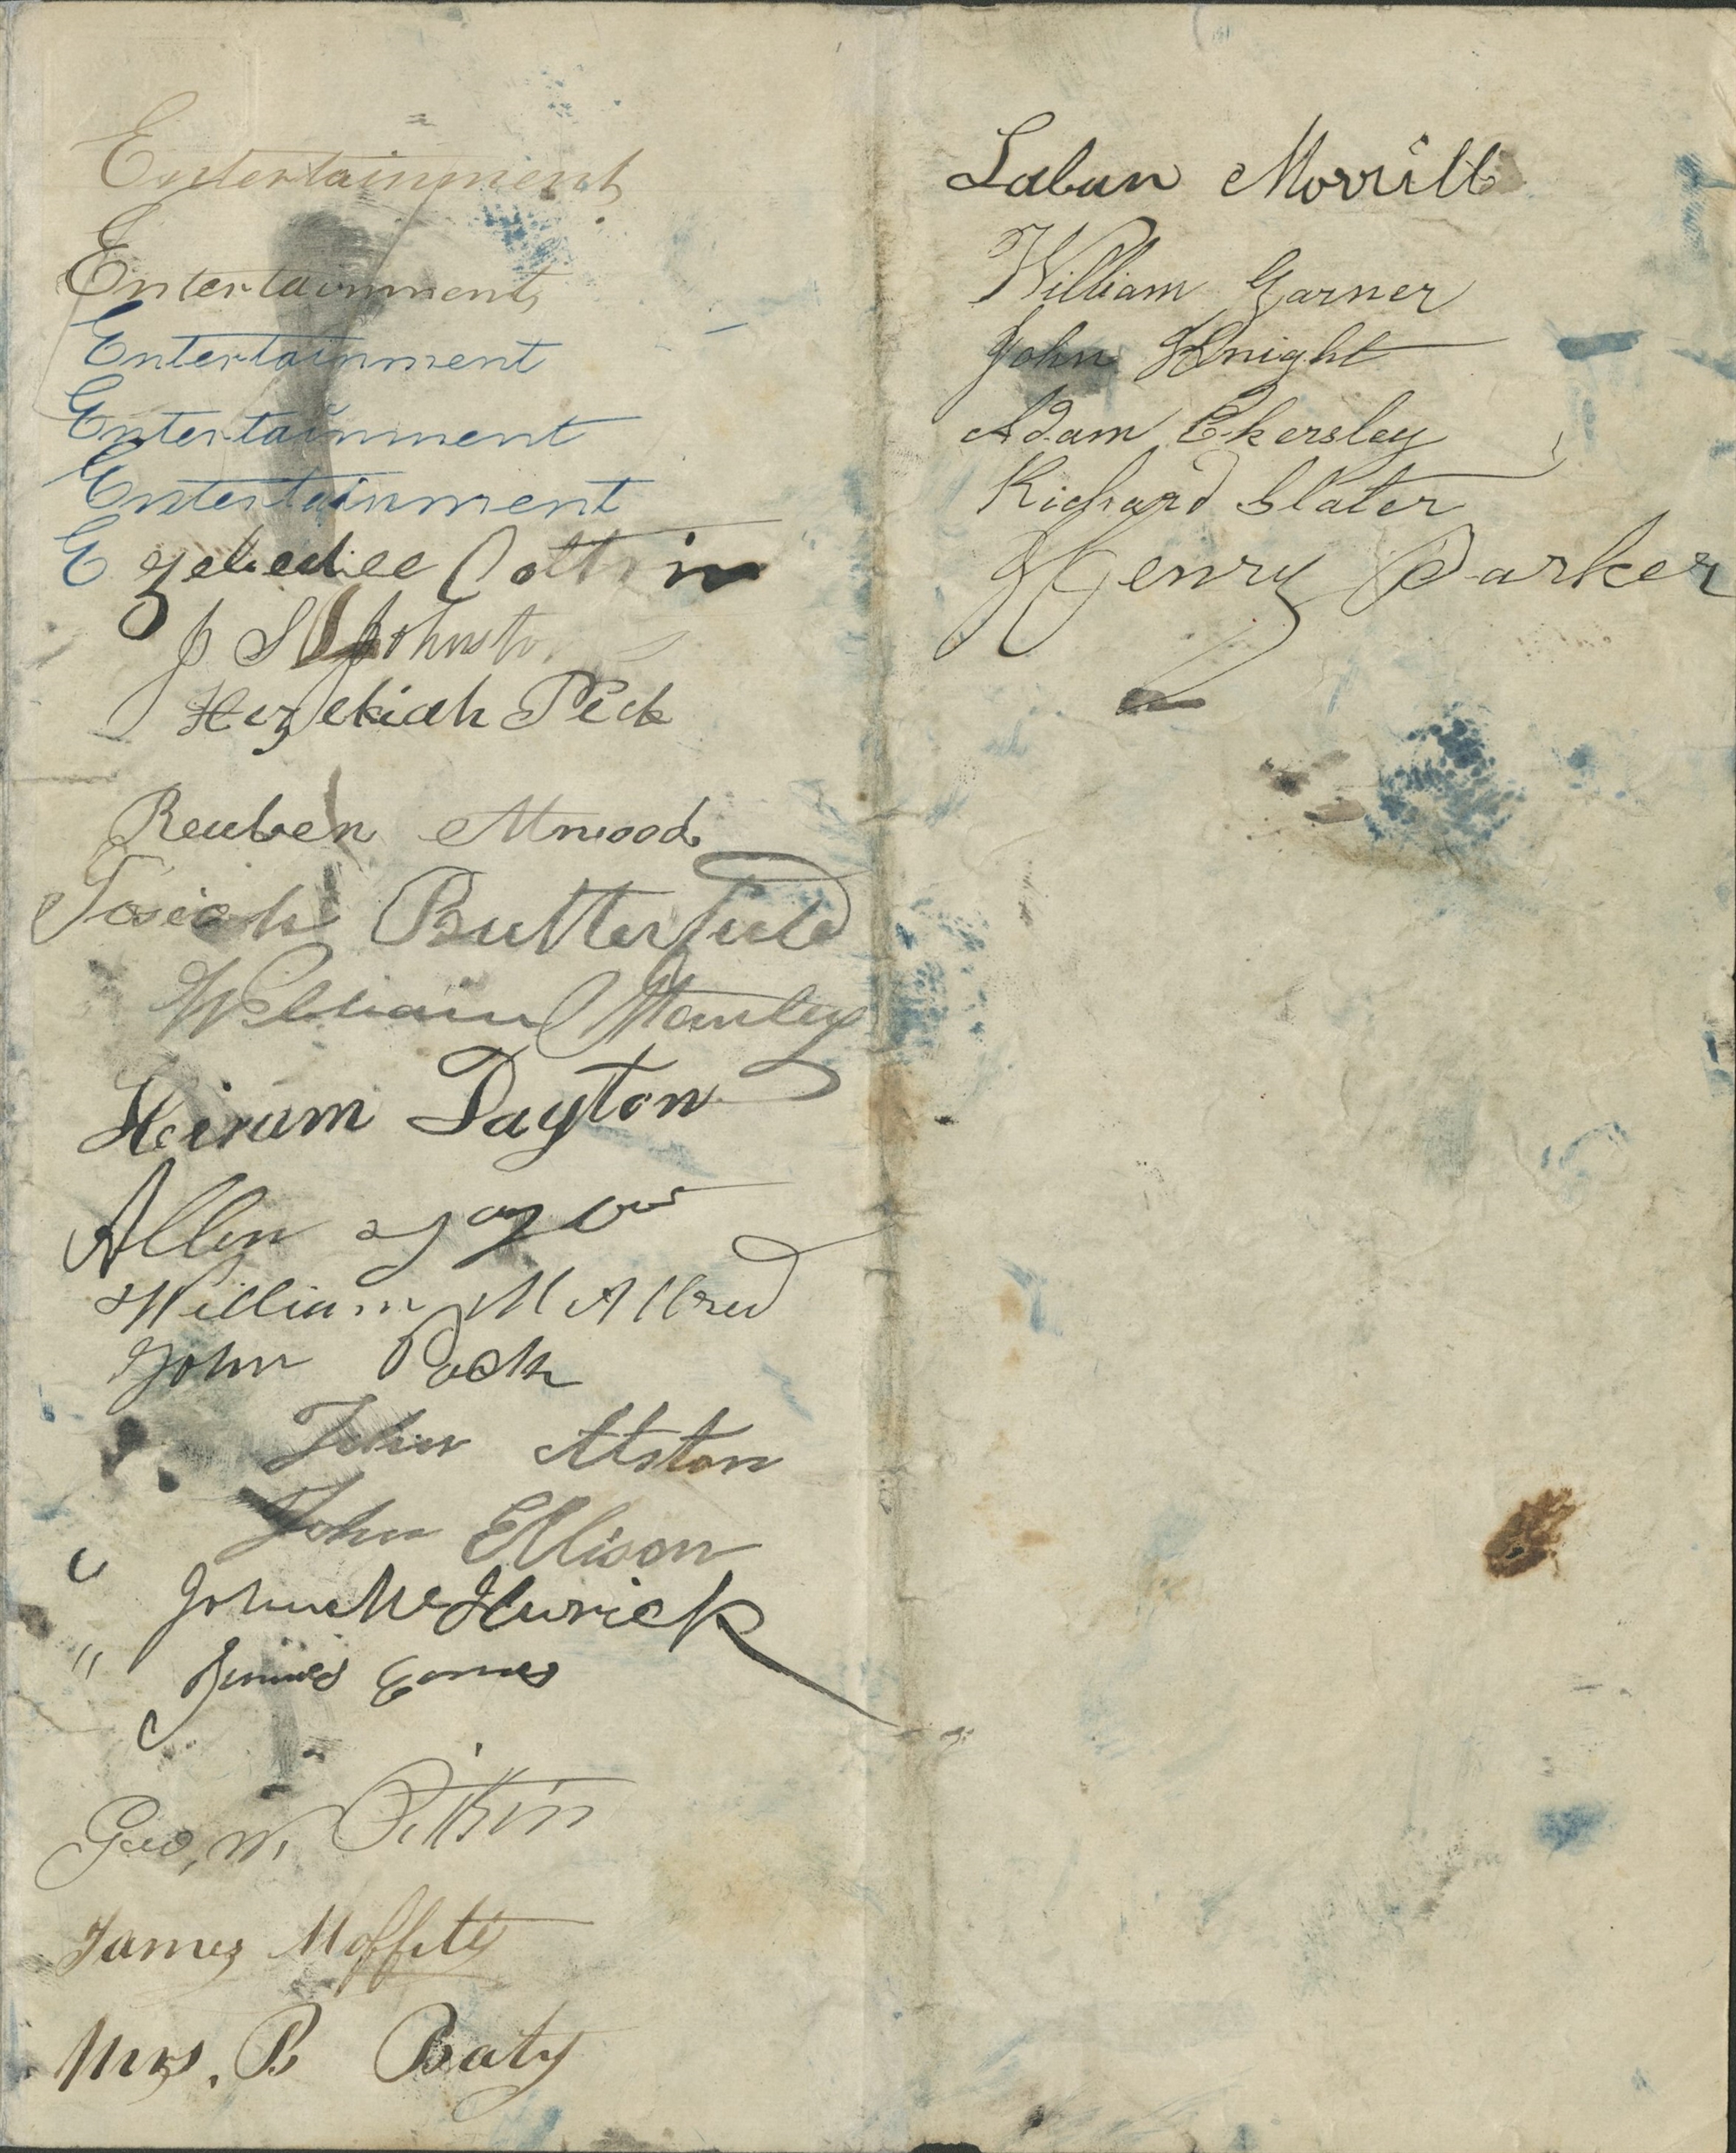 Entertainment
Entertainment
Entertainment
Entertainment
Entertainment
E Zebedee Coltrin
J S Johnsto
Hezekiah Peck
Reuben Atwood
Josiah Butterfield
William Stanley
Hiram Dayton
Allen
William M Allred
John Pack
John Alston
John Ellison
"
"
Geo, W. Pitkin
James Moffitt
Mrs. B Baty
Laban Morrill
William Garner
John Knight
Adam Ekersley
Richard Slater
Henry Parker